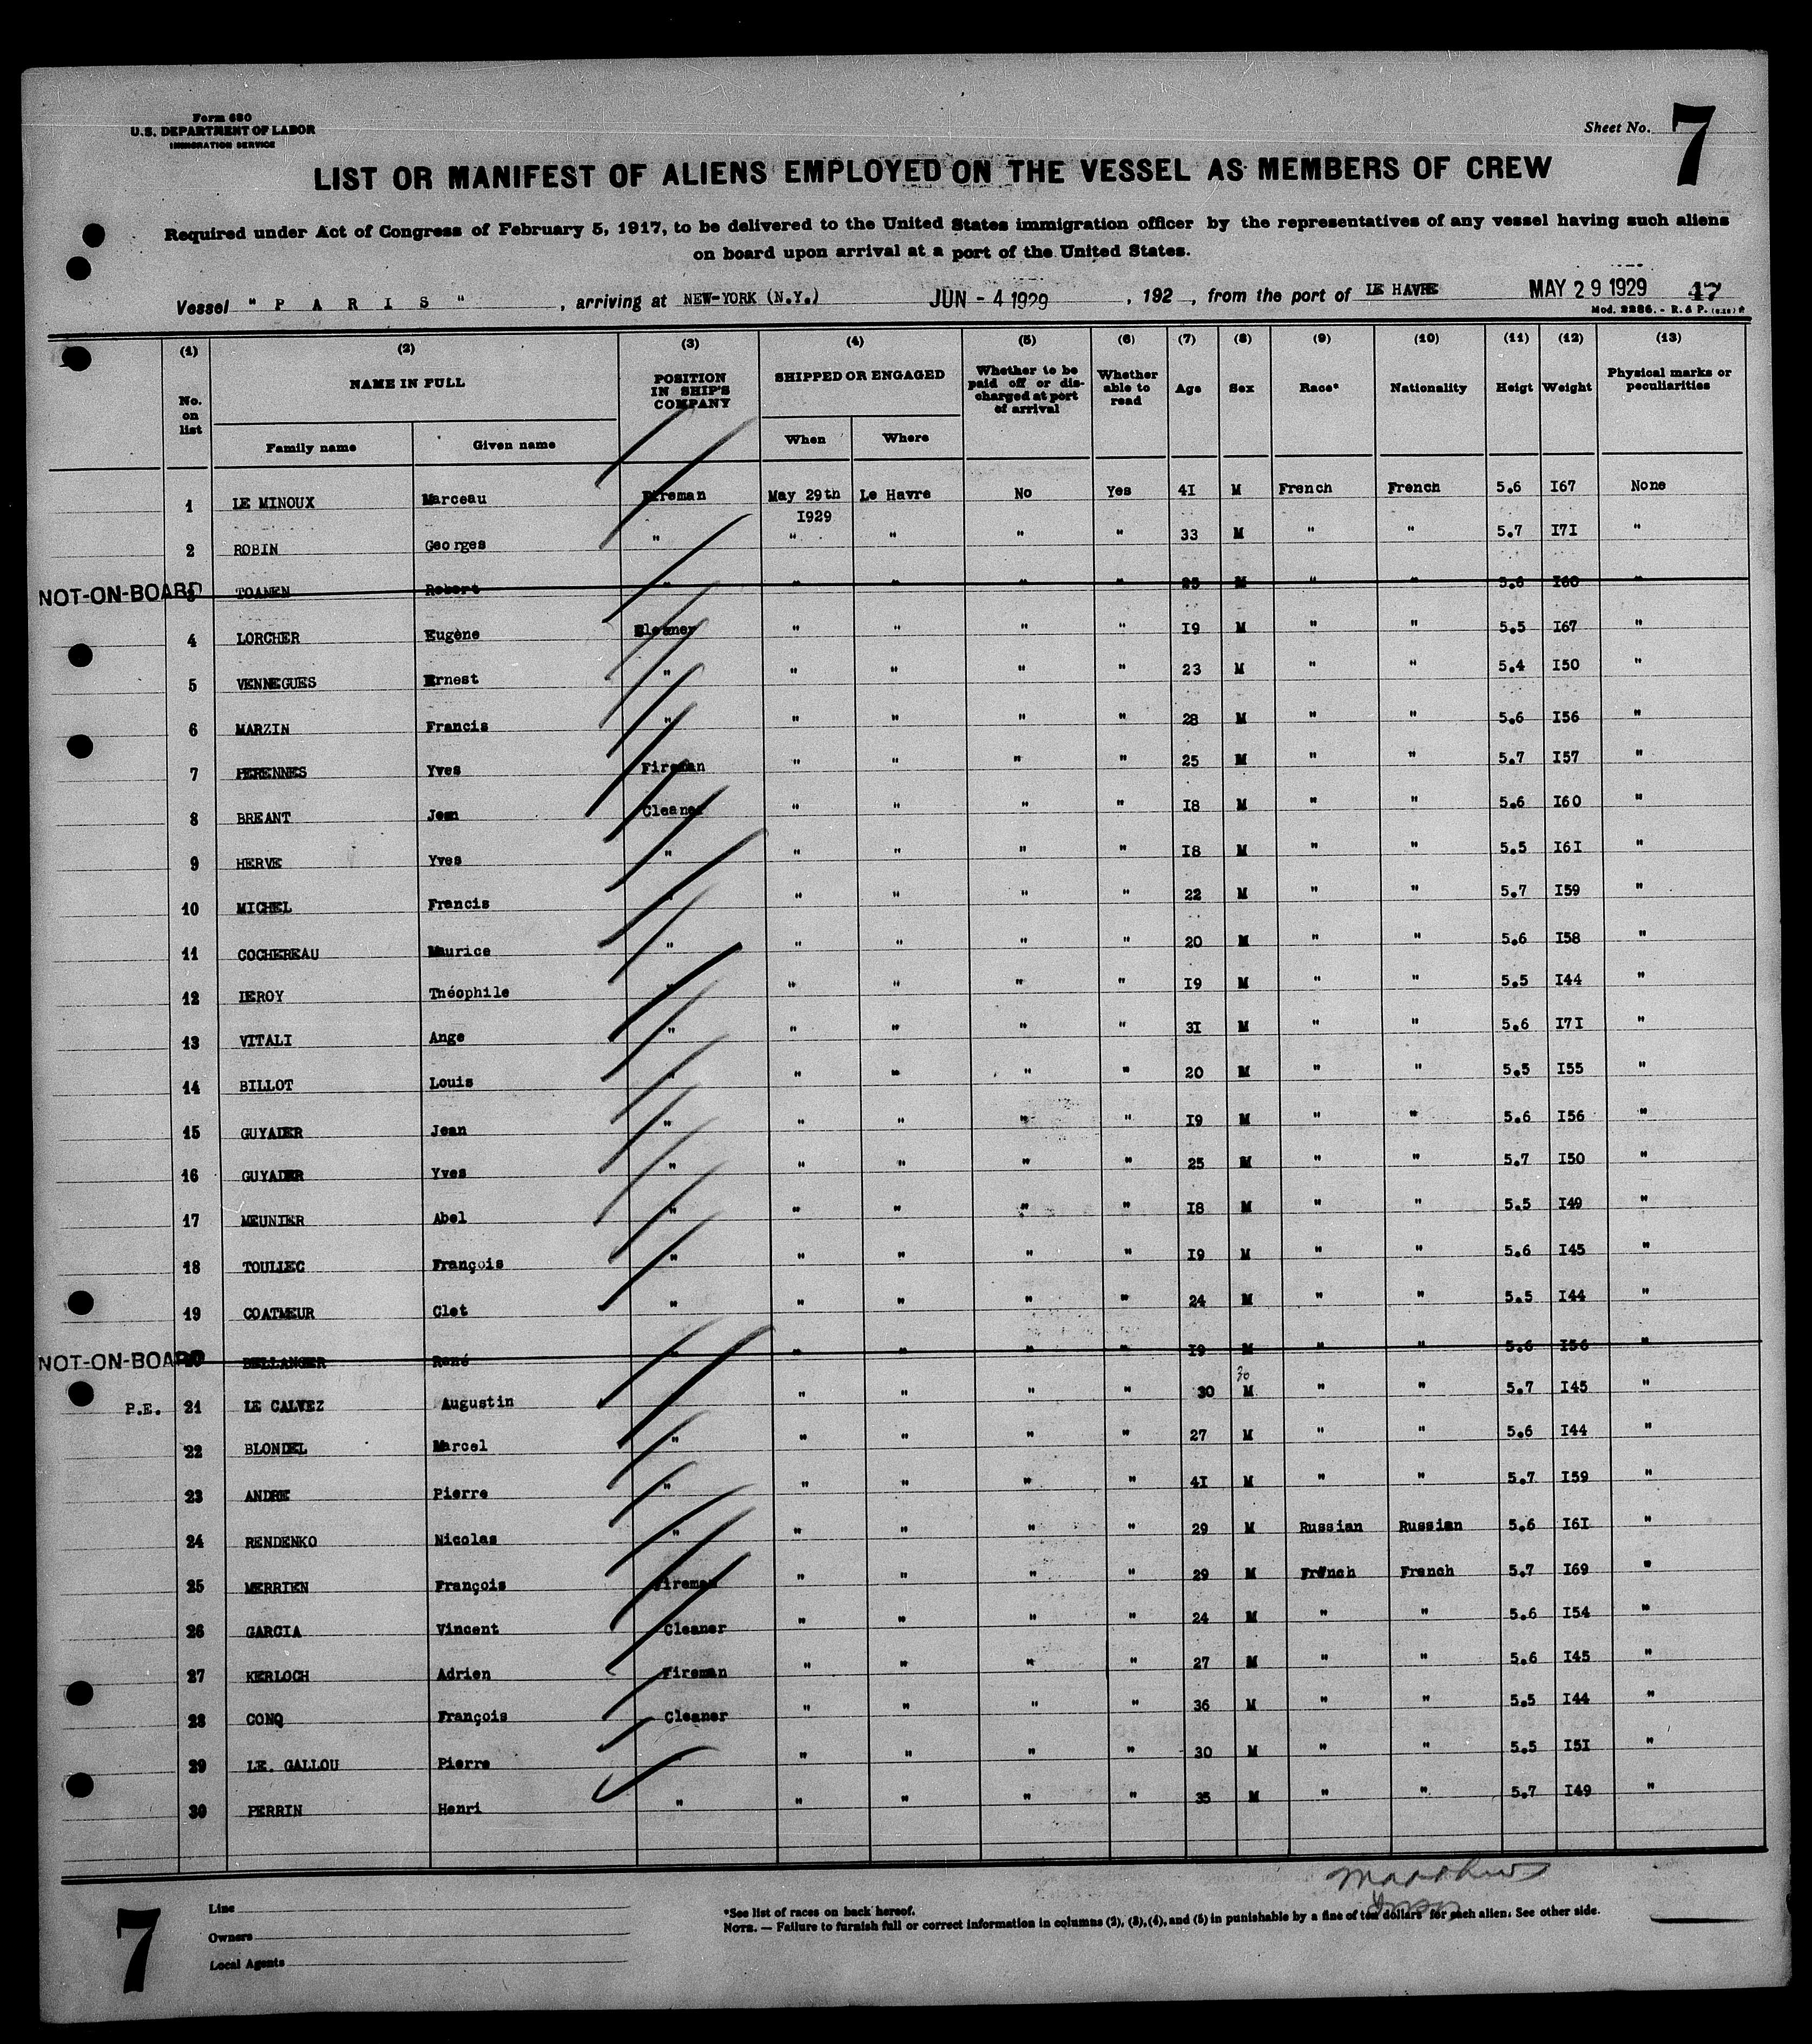 Form 680
U.S. DEPARTMENT OF LABOR
IMMIGRATION SERVICE
Sheet No. 7
LIST OR MANIFEST OF ALIENS EMPLOYED ON THE VESSEL AS MEMBERS OF CREW
Required under Act of Congress of February 5, 1917, to be delivered to the United States immigration officer by the representatives of any vessel having such aliens
on board upon arrival at a port of the United States.
Vessel " P A R I S " , arriving at NEW-YORK (N.Y.) JUN - 4 1929 , 192 , from the port of LE HAVRE MAY 29 1929 47
Mod. 2286. - R. & P.
(1) (2) (3) (4) (5) (6) (7) (8) (9) (10) (11) (12) (13)
No. on list NAME IN FULL POSITION IN SHIP'S COMPANY SHIPPED OR ENGAGED Whether to be paid off or discharged at port of arrival Whether able to read Age Sex Race* Nationality Heigt Weight Physical marks or peculiarities
Family name Given name When Where
1 LE MINOUX Marceau Fireman May 29th 1929 Le Havre No Yes 4I M French French 5.6 I67 None
2 ROBIN Georges " " " " " 33 M " " 5.7 I7I "
NOT-ON-BOARD 3 TOANEN Robert " " " " " 25 M " " 5.6 I60 "
4 LORCHER Eugène Cleaner " " " " I9 M " " 5.5 I67 "
5 VENNEGUES Ernest " " " " " 23 M " " 5.4 I50 "
6 MARZIN Francis " " " " " 28 M " " 5.6 I56 "
7 PERENNES Yves Fireman " " " " 25 M " " 5.7 I57 "
8 BREANT Jean Cleaner " " " " I8 M " " 5.6 I60 "
9 HERVE Yves " " " " " I8 M " " 5.5 I6I "
10 MICHEL Francis " " " " " 22 M " " 5.7 I59 "
11 COCHEREAU Maurice " " " " " 20 M " " 5.6 I58 "
12 LEROY Théophile " " " " " I9 M " " 5.5 I44 "
13 VITALI Ange " " " " " 3I M " " 5.6 I7I "
14 BILLOT Louis " " " " " 20 M " " 5.5 I55 "
15 GUYADER Jean " " " " " I9 M " " 5.6 I56 "
16 GUYADER Yves " " " " " 25 M " " 5.7 I50 "
17 MEUNIER Abel " " " " " I8 M " " 5.5 I49 "
18 TOULLEC François " " " " " I9 M " " 5.6 I45 "
19 COATMEUR Clet " " " " " 24 M " " 5.5 I44 "
NOT-ON-BOARD 20 BELLANGER René " " " " " I9 M " " 5.6 I56 "
30
P.E. 21 LE CALVEZ Augustin " " " " 30 M " " 5.7 I45 "
22 BLONDEL Marcel " " " " " 27 M " " 5.6 I44 "
23 ANDRE Pierre " " " " " 4I M " " 5.7 I59 "
24 RENDENKO Nicolas " " " " " 29 M Russian Russian 5.6 I6I "
25 MERRIEN François Fireman " " " " 29 M French French 5.7 I69 "
26 GARCIA Vincent Cleaner " " " " 24 M " " 5.6 I54 "
27 KERLOCH Adrien Fireman " " " " 27 M " " 5.6 I45 "
28 CONQ François Cleaner " " " " 36 M " " 5.5 I44 "
29 LE. GALLOU Pierre " " " " " 30 M " " 5.5 I5I "
30 PERRIN Henri " " " " " 35 M " " 5.7 I49 "
7
Line
Owners
Local Agents
*See list of races on back hereof.
NOTE. — Failure to furnish full or correct information in columns (2), (3), (4), and (5) in punishable by a fine of ten dollars for each alien. See other side.